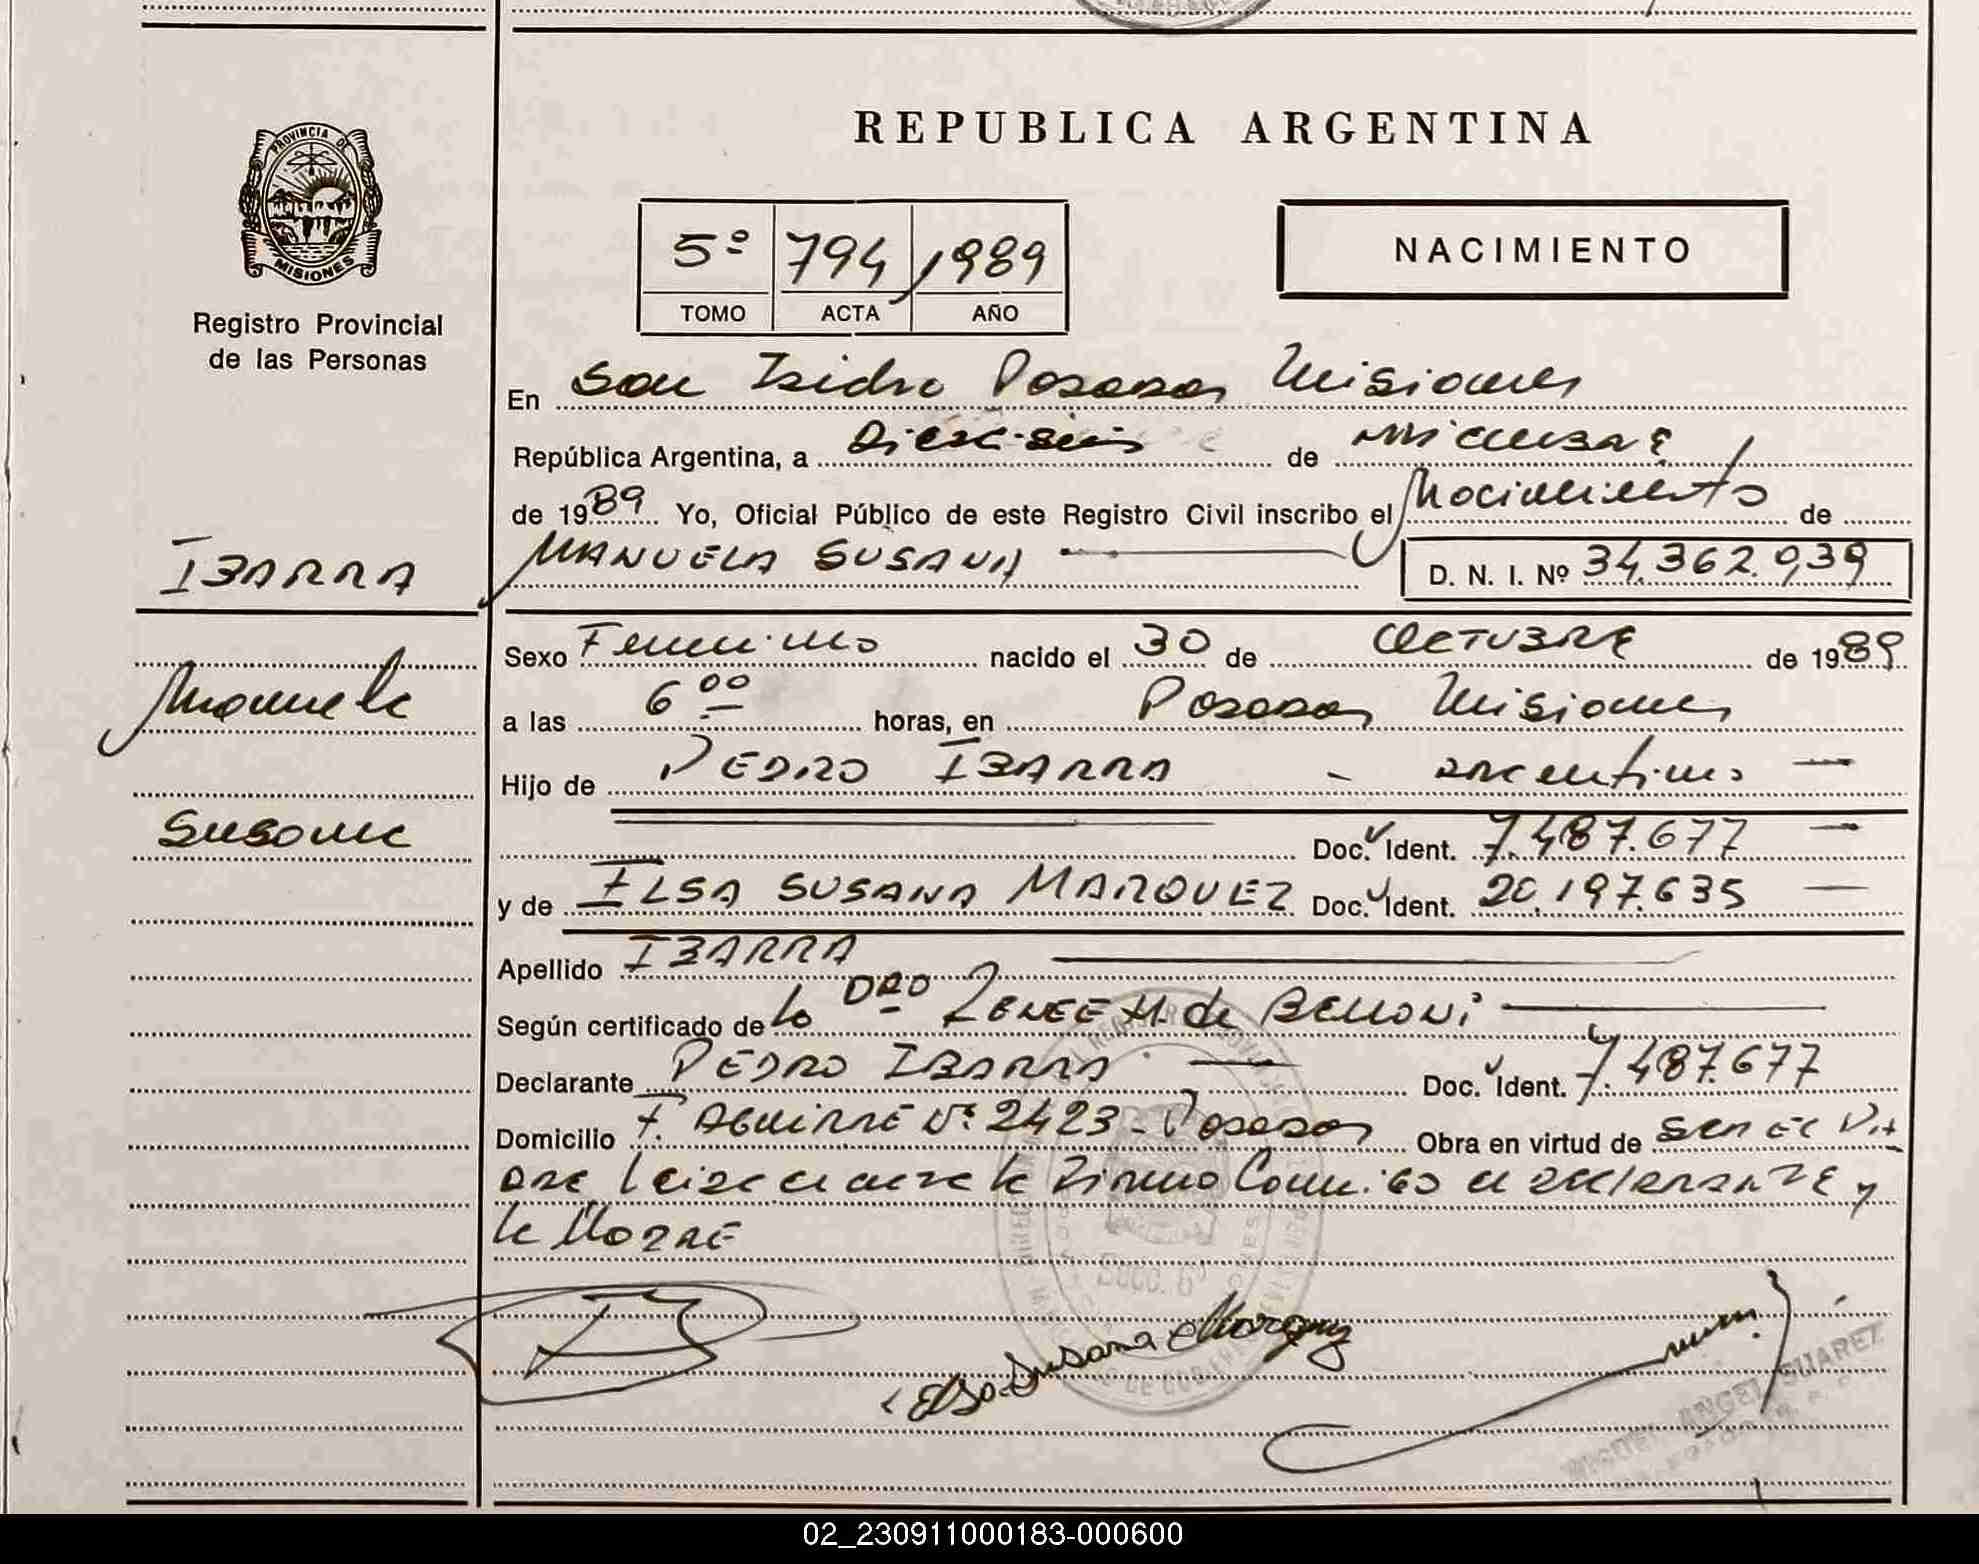 REPUBLICA ARGENTINA
PROVINCIA DE
MISIONES
Registro Provincial
de las Personas
5º 794 1989
TOMO ACTA AÑO
NACIMIENTO
En San Isidro Posadas Misiones
República Argentina, a Dieciseis de
de 1989 Yo, Oficial Público de este Registro Civil inscribo el Nacimiento de
IBARRA
MANUELA SUSANA
D. N. I. Nº 34.362.939
Manuela
Susana
Sexo Femenino nacido el 30 de OCTUBRE de 1989
a las 6 00 horas, en Posadas Misiones
Hijo de PEDRO IBARRA - argentino
Doc. Ident. 7.487.677
y de ELSA SUSANA MARQUEZ Doc. Ident. 20.197.635
Apellido IBARRA
Según certificado de la DRA RENEE M. de BELLONI
Declarante PEDRO IBARRA Doc. Ident. 7.487.677
Domicilio F. AGUIRRE Nº 2423 - Posadas Obra en virtud de ser el
la Madre
Secc. 6ª
Elsa Susana Marquez
MIGUEL ANGEL SUAREZ
02_230911000183-000600